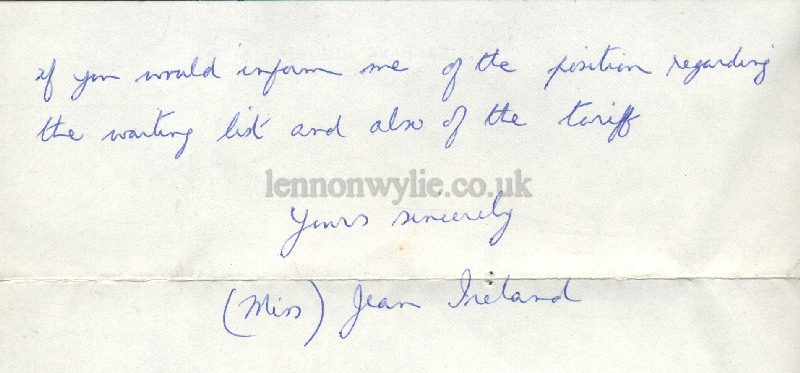 if you would inform me of the position regarding
the waiting list and also of the tariff
lennonwylie.co.uk
Yours sincerely
(Miss) Jean Ireland